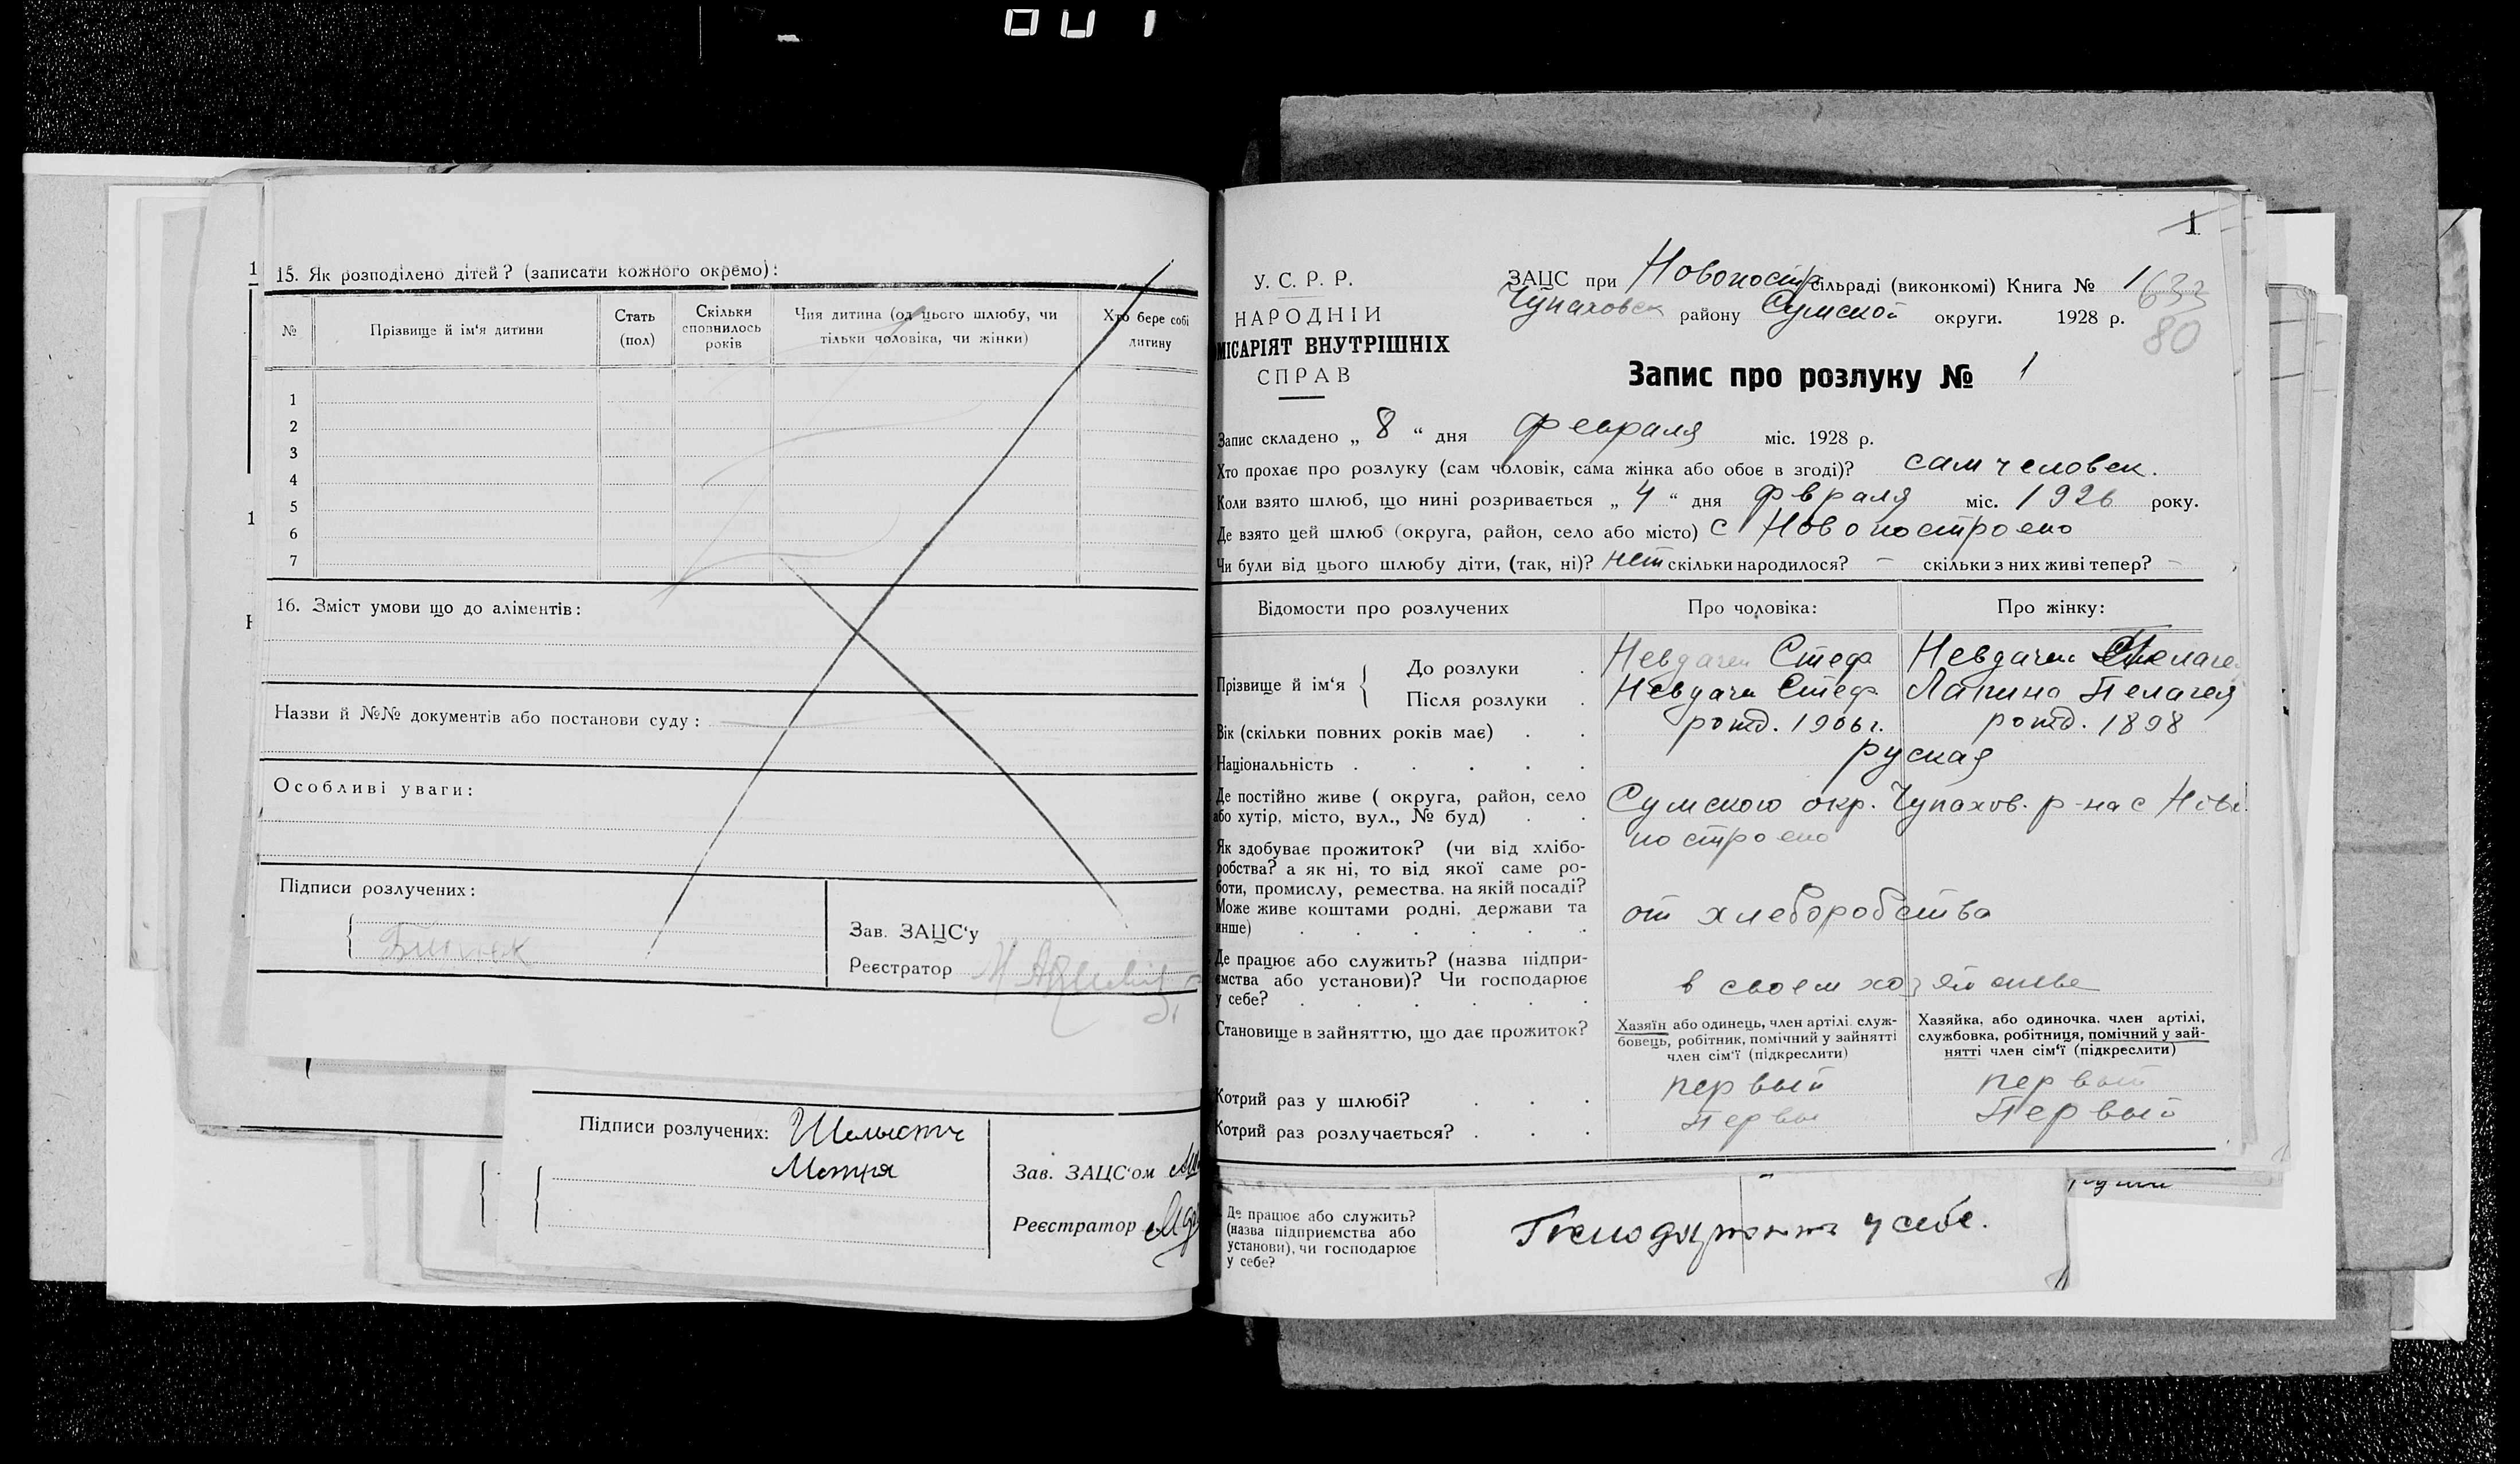 15. Як розподілено дітей? (записати кожного окремо):
№ Прізвище й ім'я дитини Стать (пол) Скільки сповнилось років Чия дитина (од цього шлюбу, чи тільки чоловіка, чи жінки) Хто бере собі дитину
1
2
3
4
5
6
7
16. Зміст умови що до аліментів:
Назви й №№ документів або постанови суду:
Особливі уваги:
Підписи розлучених:
Зав. ЗАЦС'у
Реєстратор
Підписи розлучених:
Мотря
Зав. ЗАЦС'ом
Реєстратор
1
У. С. Р. Р.
НАРОДНІЙ
МІСАРІЯТ ВНУТРІШНІХ
СПРАВ
ЗАЦС при Новопостр сільраді (виконкомі) Книга № 1
633
Чупаховск району Сумской округи. 1928 р.
80
Запис про розлуку № 1
Запис складено „ 8 “ дня февраля міс. 1928 р.
Хто прохає про розлуку (сам чоловік, сама жінка або обоє в згоді)? сам человек.
Коли взято шлюб, що нині розривається „ 4 “ дня фвраля міс. 1926 року.
Де взято цей шлюб (округа, район, село або місто) с Новопостроено
Чи були від цього шлюбу діти, (так, ні)? нет скільки народилося? – скільки з них живі тепер? –
Відомости про розлучених Про чоловіка: Про жінку:
Прізвище й ім'я
До розлуки Невдачен Стеф Невдачен
Після розлуки Невдачн Стеф Лапина Пелагея
Вік (скільки повних років має) рожд. 1906 г. рожд. 1898
Національність руская
Де постійно живе ( округа, район, село
або хутір, місто, вул., № буд)
Сумского окр. Чупахов. р-на с Ново
построено
Як здобуває прожиток? (чи від хлібо-
робства? а як ні, то від якої саме ро-
боти, промислу, ремества. на якій посаді?
Може живе коштами родні, держави та
инше)
от хлеборобства
Де працює або служить? (назва підпри-
ємства або установи)? Чи господарює
у себе?
в своем хозяйстве
Становище в зайняттю, що дає прожиток?
Хазяїн або одинець, член артілі, служ-
бовець, робітник, помічний у зайнятті
член сім'ї (підкреслити)
Хазяйка, або одиночка, член артілі,
службовка, робітниця, помічний у зай-
нятті член сім'ї (підкреслити)
Котрий раз у шлюбі? первый первый
Котрий раз розлучається? Первы Первый
Де працює або служить?
(назва підприємства або
установи), чи господарює
у себе?
у себе.